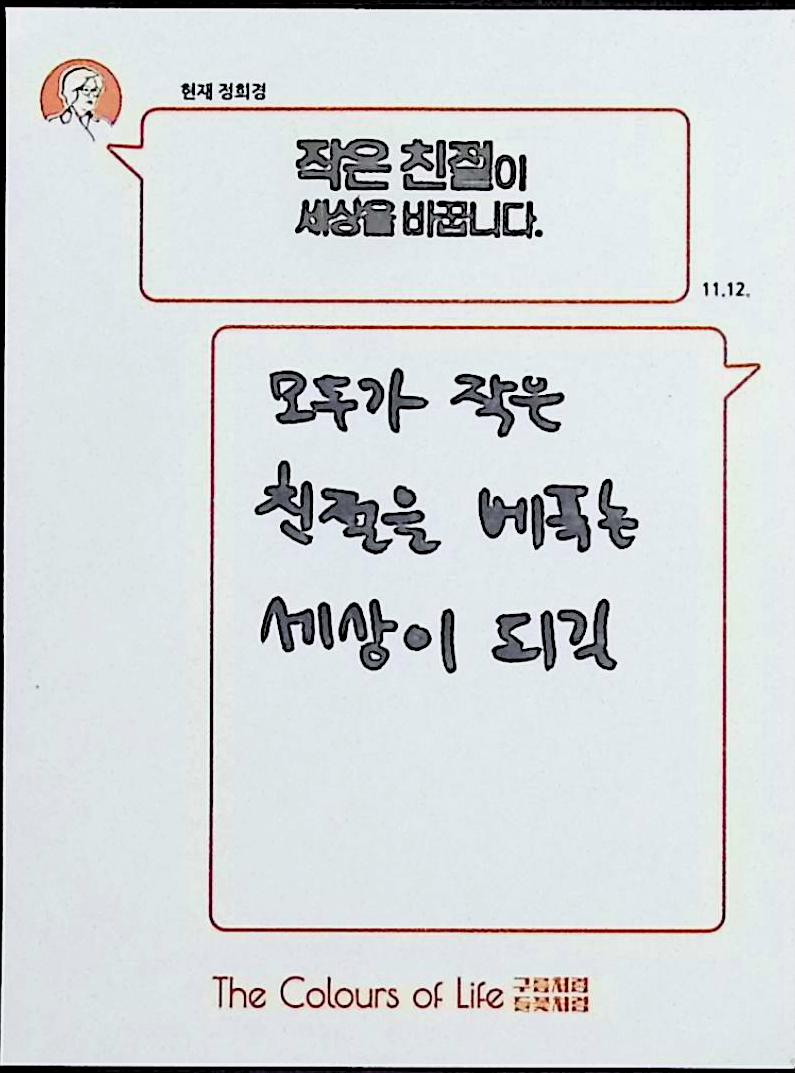 현재 정희경
작은 친절이
세상을 바꿉니다.
11.12.
모두가 작은
친절을 베푸는
세상이 되길
The Colours of Life 구름처럼
들꽃처럼